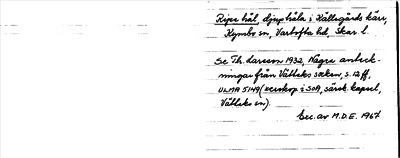 Ripes hål, djup håla i Källegårds kärr,
Kymbo sn, Vartofta hd, Skar. l.
Se Th. Larsson 1932, Några anteck-
ningar från Vättlaks socken, s. 12 ff,
ULMA 5149 (xeroxkop. i SOA, särsk. kapsel,
Vättlaks sn).
Exc. av M.D.E. 1967